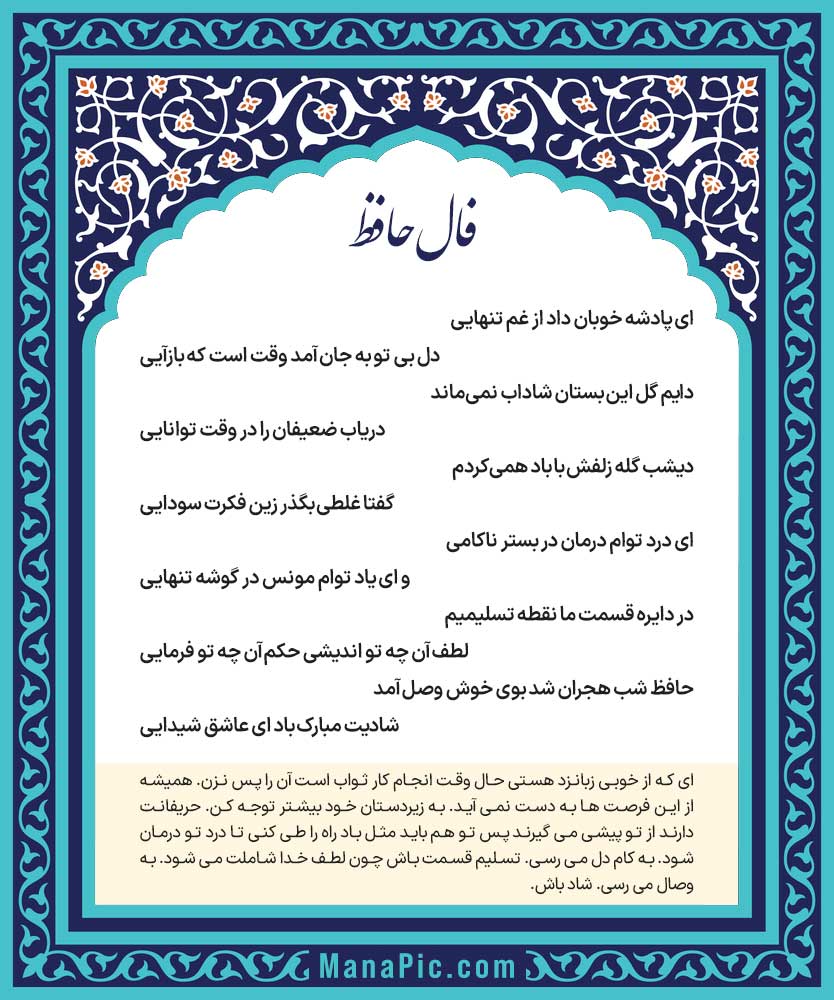 فال حافظ
ای پادشه خوبان داد از غم تنهایی
دل بی تو به جان آمد وقت است که بازآیی
دایم گل این بستان شاداب نمی‌ماند
دریاب ضعیفان را در وقت توانایی
دیشب گله زلفش با باد همی‌کردم
گفتا غلطی بگذر زین فکرت سودایی
ای درد توام درمان در بستر ناکامی
و ای یاد توام مونس در گوشه تنهایی
در دایره قسمت ما نقطه تسلیمیم
لطف آن چه تو اندیشی حکم آن چه تو فرمایی
حافظ شب هجران شد بوی خوش وصل آمد
شادیت مبارک باد ای عاشق شیدایی
ای که از خوبی زبانزد هستی حال وقت انجام کار ثواب است آن را پس نزن. همیشه
از این فرصت ها به دست نمی آید. به زیردستان خود بیشتر توجه کن. حریفانت
دارند از تو پیشی می گیرند پس تو هم باید مثل باد راه را طی کنی تا درد تو درمان
شود. به کام دل می رسی. تسلیم قسمت باش چون لطف خدا شاملت می شود. به
وصال می رسی. شاد باش.
ManaPic.com